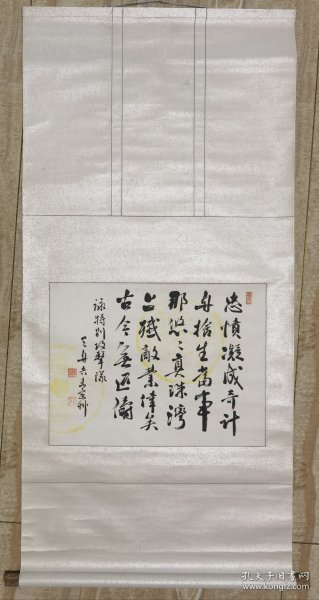 忠憤凝成奇計
舟捨生當事
那悠々真珠灣
上殲敵業偉矣
古今無匹儔
詠特別攻撃隊
孔夫子旧书网